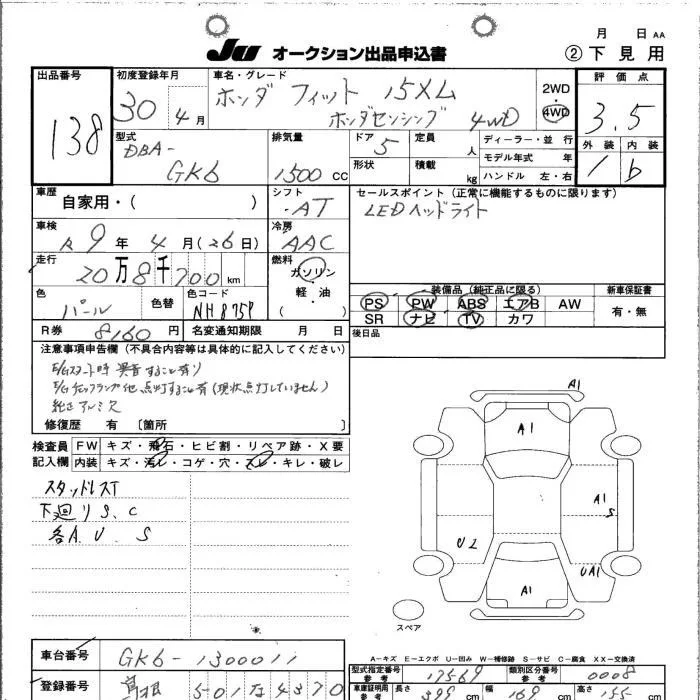 月 日 AA
JU オークション出品申込書 ② 下見用
出品番号 初度登録年月 車名・グレード 評価点
138 30年 4月 ホンダ フィット 15XL
ホンダセンシング 4WD
2WD
4WD
3.5
型式 排気量 ドア 定員 ディーラー・並行 外装 内装
DBA-
GK6 1500 CC 5 人 モデル年式 年 1 b
形状 積載 kg ハンドル 左・右
車歴 シフト セールスポイント (正常に機能するものに限ります)
自家用・( ) AT LEDヘッドライト
車検 冷房
R 9年 4月(26日) AAC
走行 燃料
20万8千700km ガソリン
軽・油
( )
装備品(純正品に限る) 新車保証書
色 色替 色コード PS PW ABS エアB AW 有・無
パール NH875P SR ナビ TV カワ
R券 8160円 名変通知期限 月 日 後日品
注意事項申告欄 (不具合内容等は具体的に記入してください)
E/Gスタート時 異音すること有り
E/Gチェックランプ他 点灯すること有(現状点灯していません)
純正アルミ欠
修復歴 有 〔箇所 〕
検査員 FW キズ・飛石・ヒビ割・リペア跡・X要
記入欄 内装 キズ・汚レ・コゲ・穴・スレ・キレ・破レ
スタッドレスT
下廻りS、C
各A、U、S
A1
A1
A1
S
U2
UA1
A1
スペア
A-キズ E-エクボ U-凹み W-補修跡 S-サビ C-腐食 XX-交換済
車台番号 GK6-1300011
型式指定番号 参考 17569 類別区分番号 参考 0008
登録番号 島根 501 な 4370
車庫証明用 参考 長さ 399 cm 幅 169 cm 高さ 155 cm